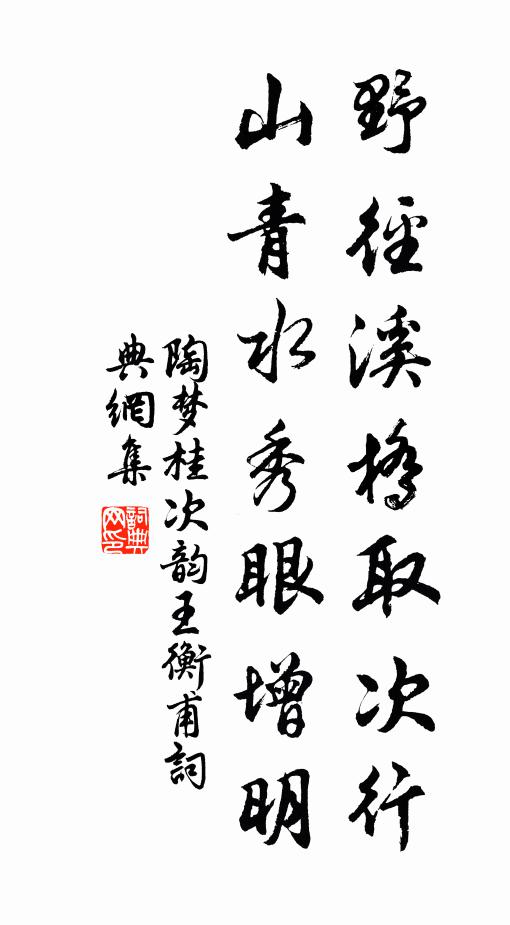 野徑溪橋取次行
山青水秀眼增明
陶梦桂次韵王衡甫詞
典網集
詞典
网印